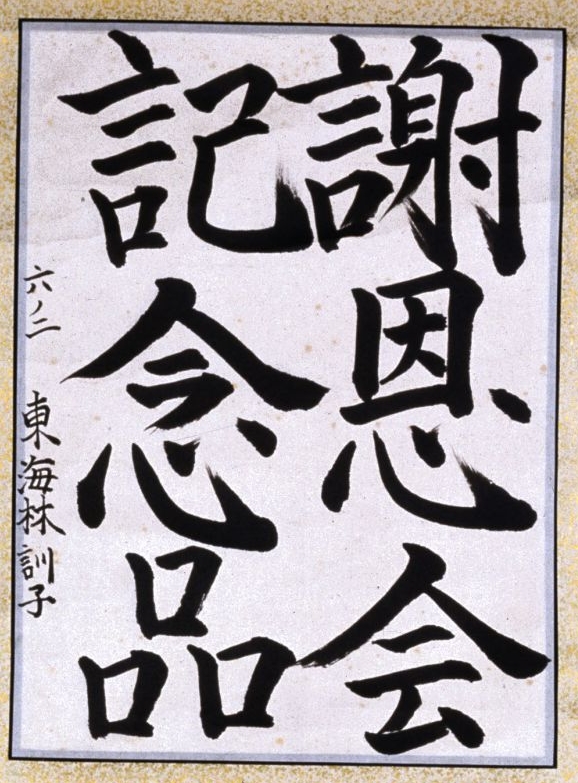 謝恩会
記念品
六ノ二 東海林訓子